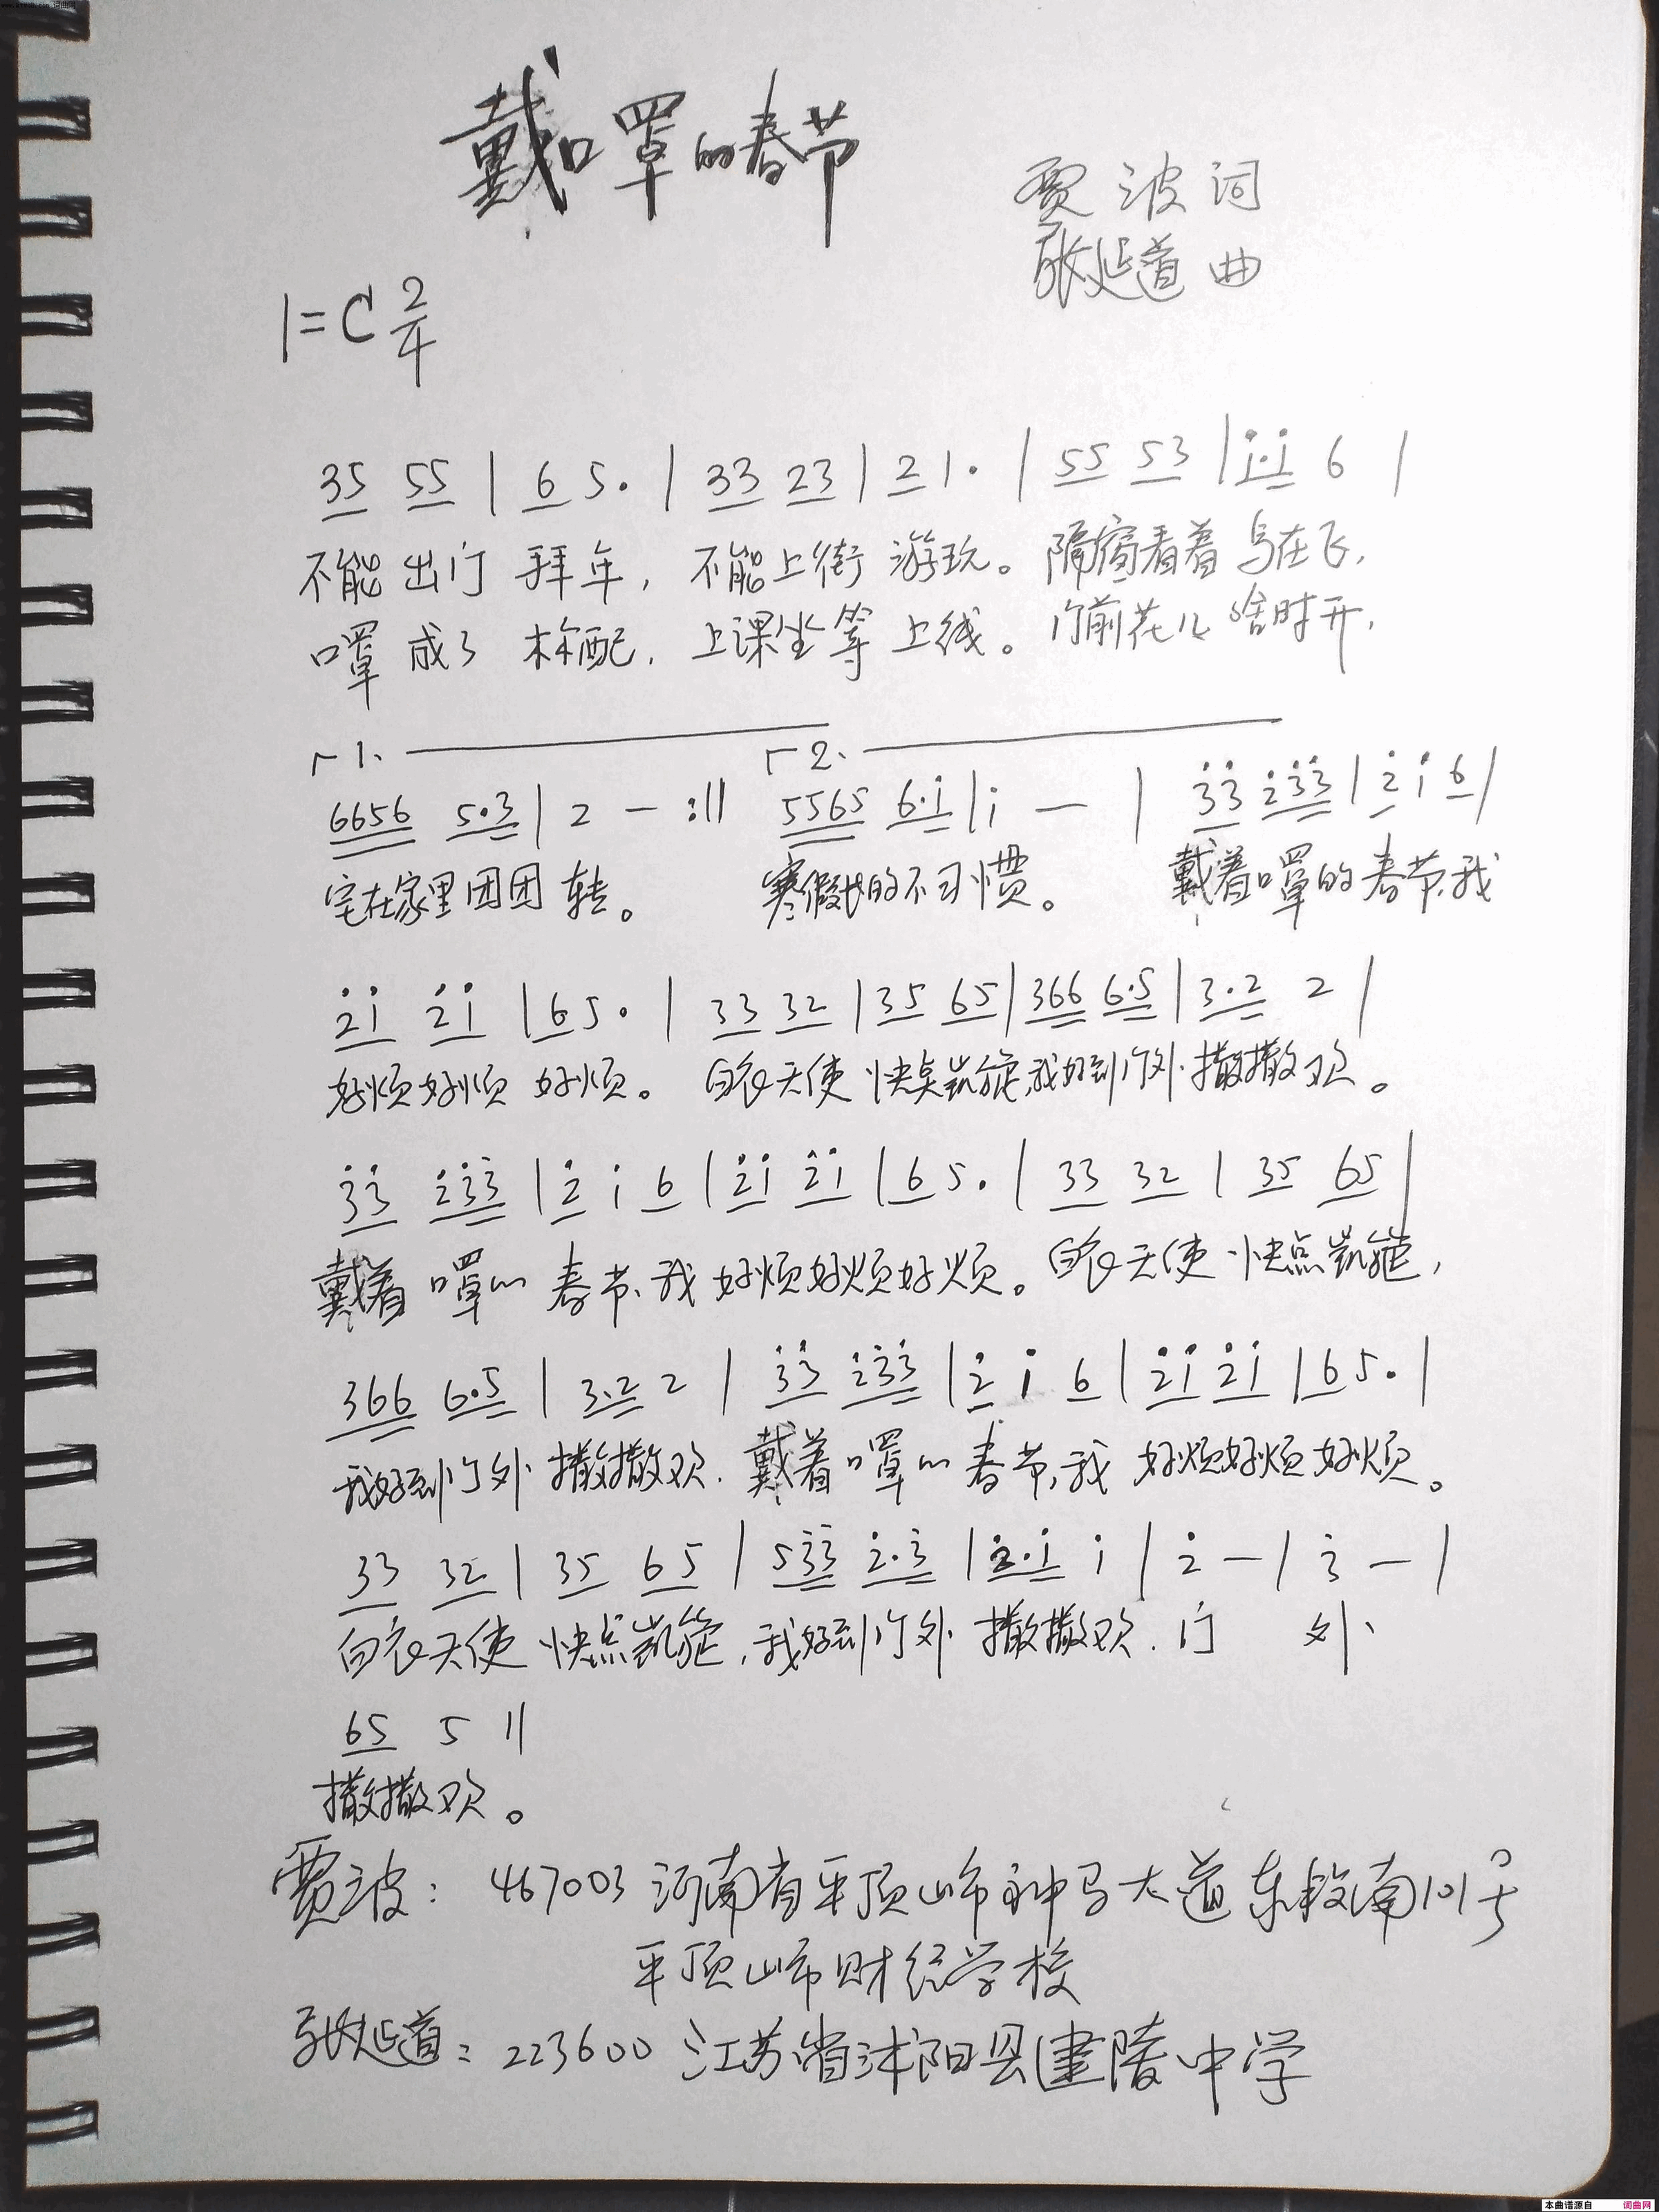 戴口罩的春节
贾波词
张延道曲
1=C 2/4
35 55 | 6 5. | 33 23 | 2 1. | 55 53 | i.i 6 |
不能出门拜年,不能上街游玩。隔窗看着鸟在飞,
口罩成了标配,上课坐等上线。门前花儿啥时开,
1. 2.
6656 5.3 | 2 — :|| 5565 6.i | i — | 33 i33 | 2 i 6 |
宅在家里团团转。 寒假长的不习惯。 戴着口罩的春节,我
2i 2i | 6 5. | 33 32 | 35 65 | 366 6.5 | 3.2 2 |
好烦好烦好烦。白衣天使快点凯旋,我好到门外撒撒欢。
33 233 | 2 i 6 | 2i 2i | 6 5. | 33 32 | 35 65 |
戴着口罩的春节,我好烦好烦好烦。白衣天使快点凯旋,
366 6.5 | 3.2 2 | 33 233 | 2 i 6 | 2i 2i | 6 5. |
我好到门外撒撒欢.戴着口罩的春节,我好烦好烦好烦。
33 32 | 35 65 | 533 2.3 | 2.i i | 2 — | 3 — |
白衣天使快点凯旋,我好到门外撒撒欢.门外
65 5 ||
撒撒欢。
贾波:467003河南省平顶山市神马大道东段南101号
平顶山市财经学校
张延道:223600江苏省沭阳县建陵中学
本曲谱源自 词曲网